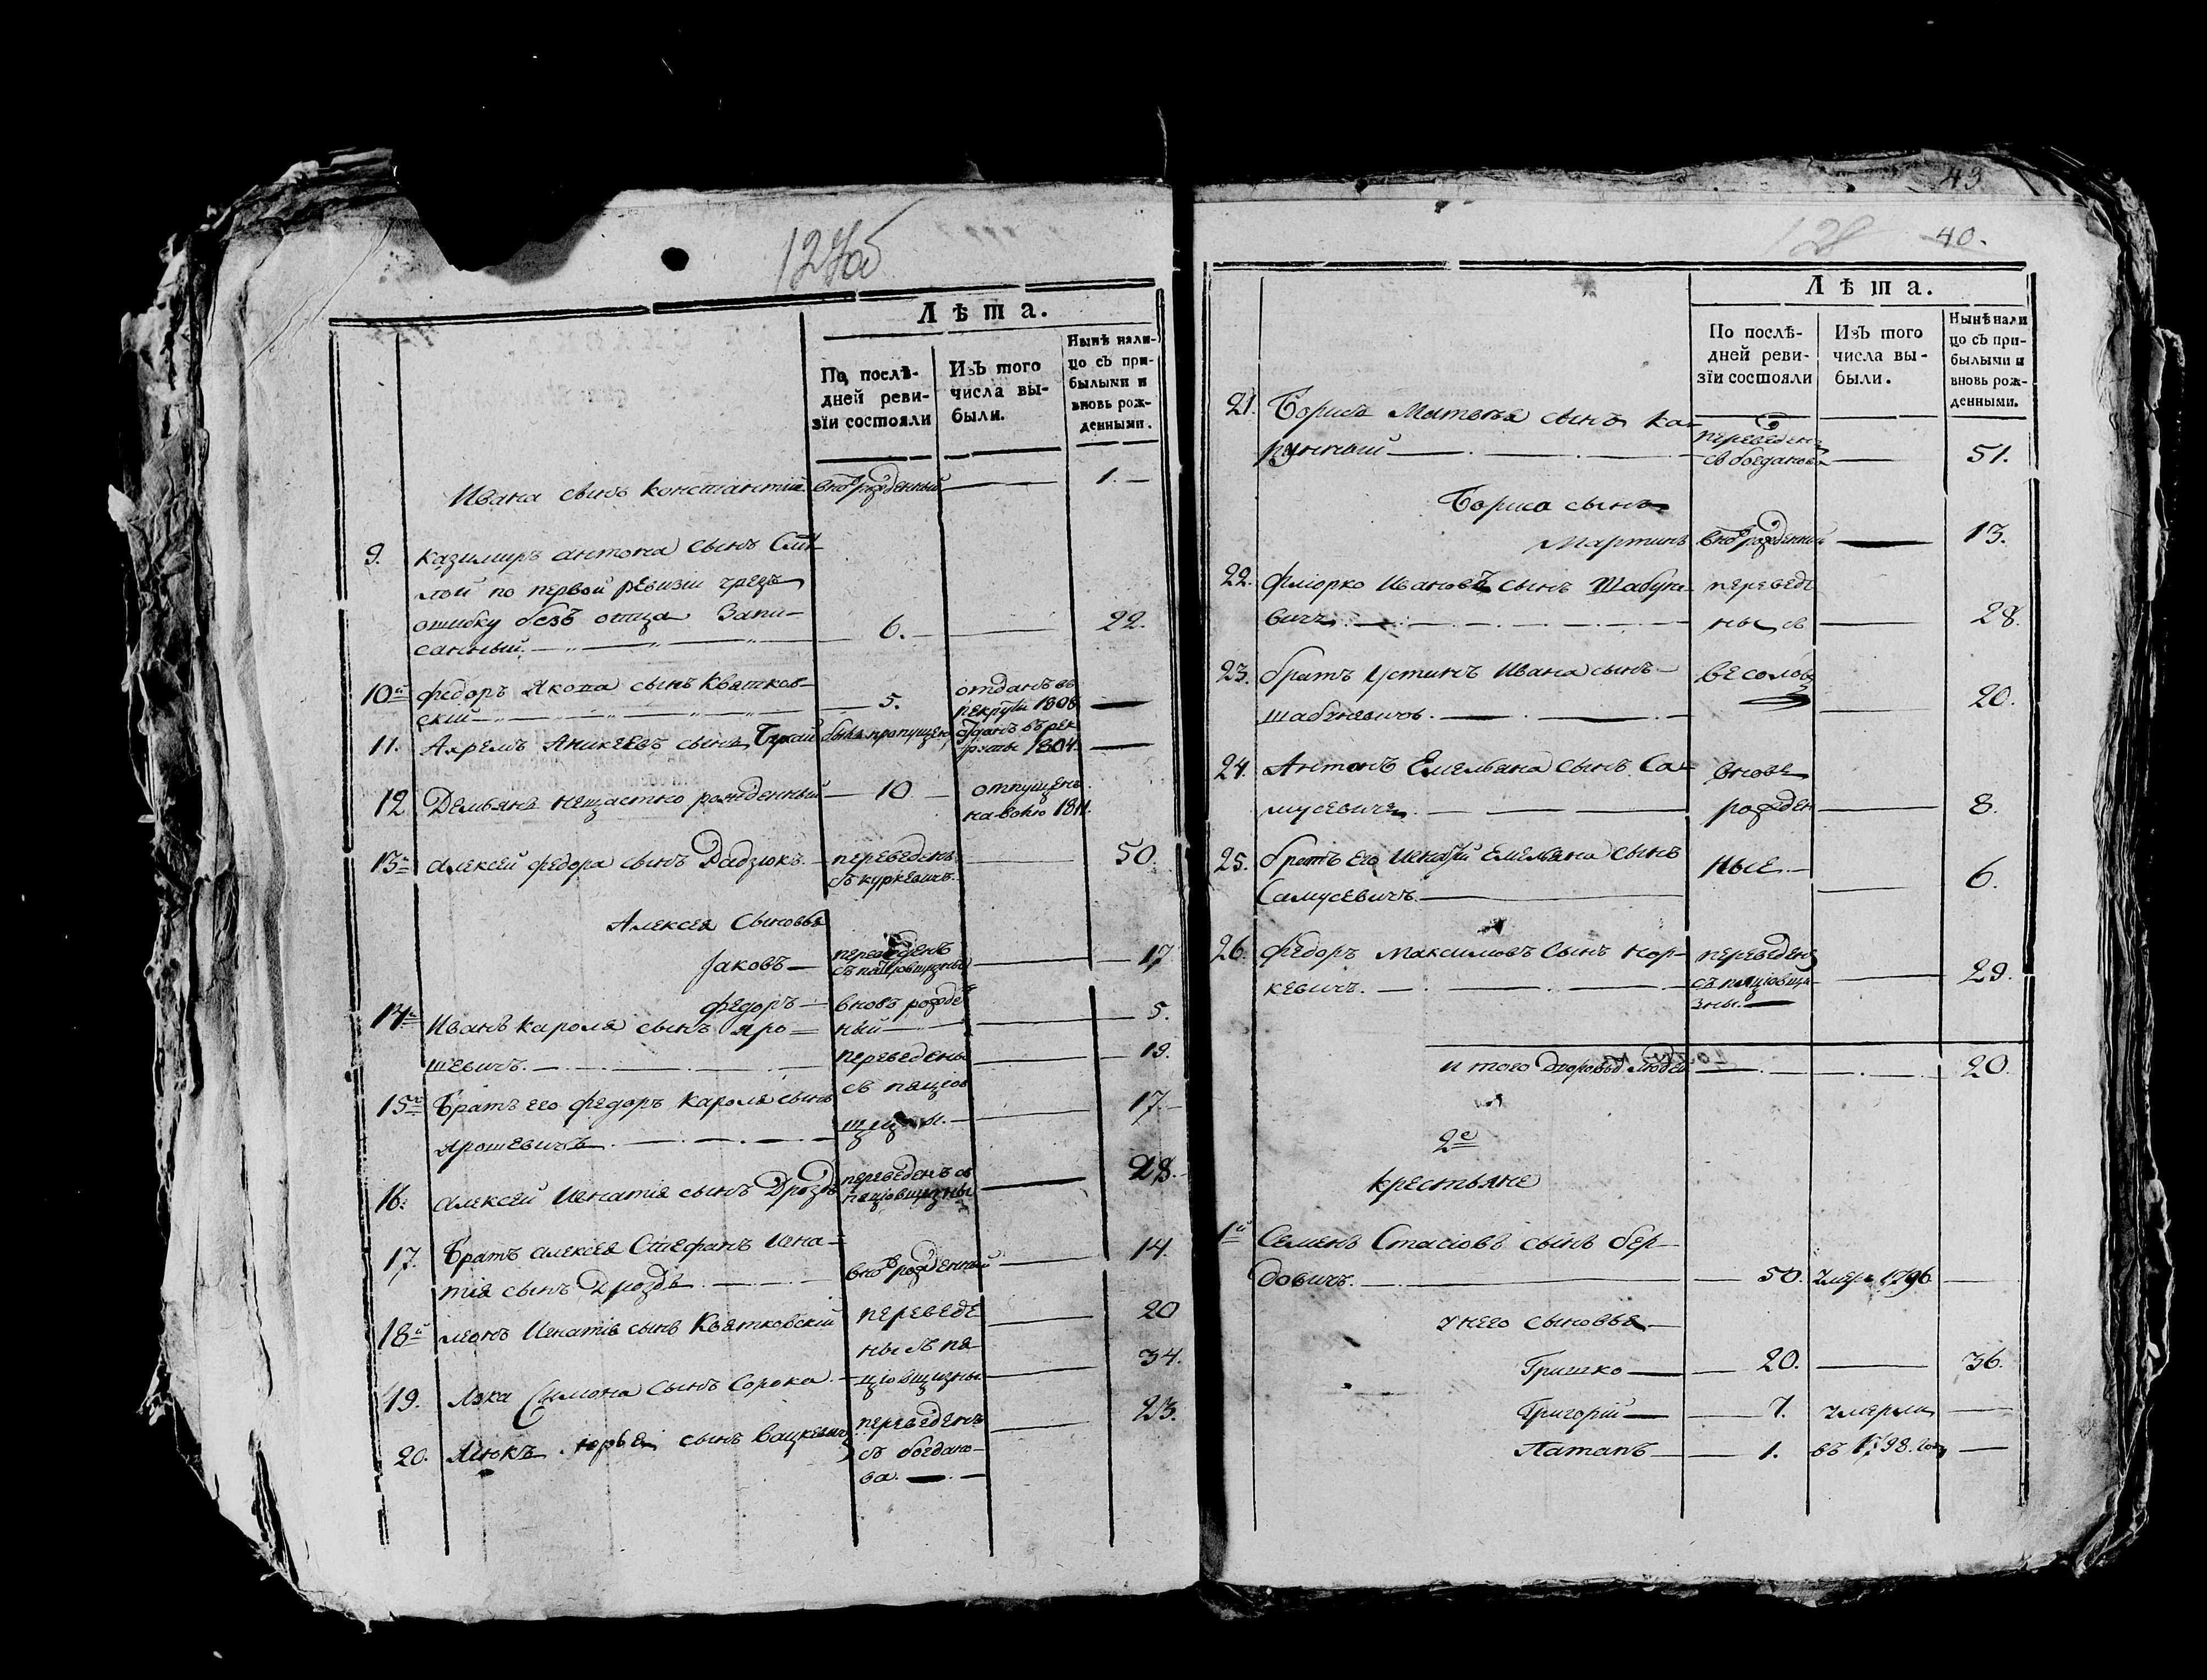 127об
Лѣта.
По послѣ-
дней реви-
зїи состояли
Изъ того
числа вы-
были.
Нынѣ нали-
цо съ при-
былыми и
вновь рож-
денными.
Ивана сынъ Константій вновь рожденный 1.
9. Казимиръ антона сынъ
по первой ревизіи чрезъ
ошибку безъ отца Запи-
санный. 6. 22.
10й федоръ Якопа сынъ Квятков-
скій 5. отданъ въ рекруты 1806
11. Ахремъ Аникеевъ сынъ былъ пропущенъ отданъ въ рек
руты 1804
12 Демьянъ нещастно рожденный 10 отпущенъ
на волю 1811.
13й алексей федора сынъ Дадзюкъ переведенъ 50.
съ куркевичъ
Алексея Сыновья
Яковъ переведенъ 17
съ пацовщизны
федоръ вновь рожде 5.
14й Иванъ кароля сынъ Яро= ный
шевичъ. переведены 19.
15й Братъ его федоръ кароля сынъ съ паціов 17.
Ярошевичъ щизны.
16. алексей Игнатія сынъ Дроздъ переведенъ съ 28.
паціовщизны
17. Братъ алексея Стефанъ Игна- 14.
тія сынъ Дроздъ вновь рожденный
18й леонъ Игнатія сынъ Квятковскій переведе 20
ны съ па-
19. Лука Симона сынъ Сорока. ціовщизны 34.
20. Юрья сынъ Вацкевичъ переведенъ 23.
съ богдано-
ва.
43
128 40.
Лѣта.
По послѣ-
дней реви-
зїи состояли
Изъ того
числа вы-
были.
Нынѣ нали
цо съ при-
былыми и
вновь рож-
денными.
21. Борисъ Матвея сынъ Ка- переведенъ
рунный съ богданова 51.
Бориса сынъ
Мартинъ вновь рожденный 13.
22. Фліорко Ивановъ сынъ Шабуне- переведе
вичъ. ны съ 28.
23. братъ Устинъ Ивана сынъ веселова
шабуневичъ. 20.
24. Антонъ Емельяна сынъ Са- вновь
мусевичъ рожден 8.
25. братъ его Игнатій Емельяна сынъ ные
Самусевичъ. 6.
26. федоръ Максимовъ Сынъ Нор- переведенъ
кевичъ. съ паціовщи- 29.
зны.
и того дворовыхъ людей 20.
2е
крестьяне
1й Семенъ Стасіовъ сынъ бер-
довичъ. 50. умеръ 1796
у него сыновья
Гришко 20. 36.
Григорій 7. умерли
Патапъ 1. въ 1798. году